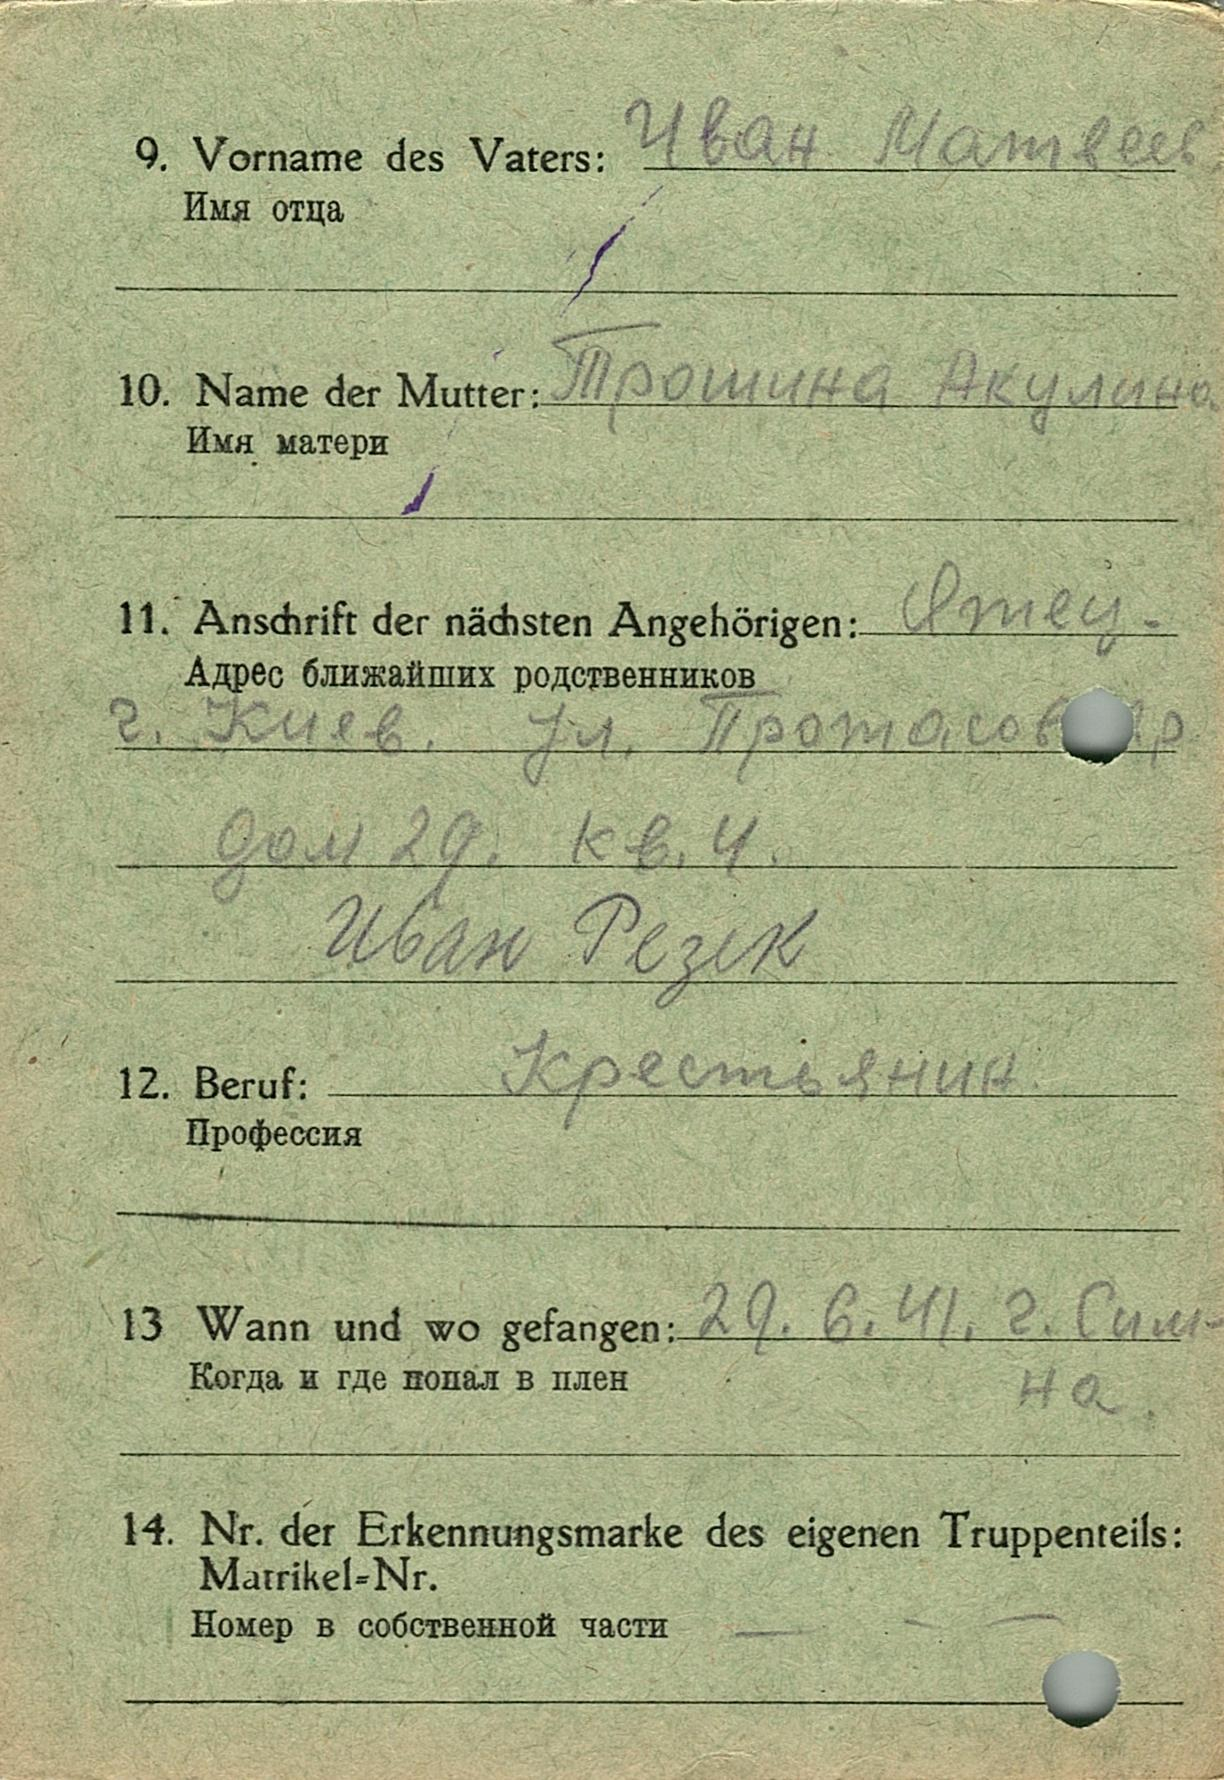 9. Vorname des Vaters: Иван Матвеев
Имя отца
10. Name der Mutter: Трошина Акулина
Имя матери
11. Anschrift der nächsten Angehörigen: Отец -
Адрес ближайших родственников
г. Киев. ул. Протасов Яр
дом 29. кв. 4.
Иван Резек
12. Beruf: Крестьянин.
Профессия
13 Wann und wo gefangen: 29. 6. 41. г. Сим-
Когда и где попал в плен
на.
14. Nr. der Erkennungsmarke des eigenen Truppenteils:
Matrikel-Nr.
Номер в собственной части — — —